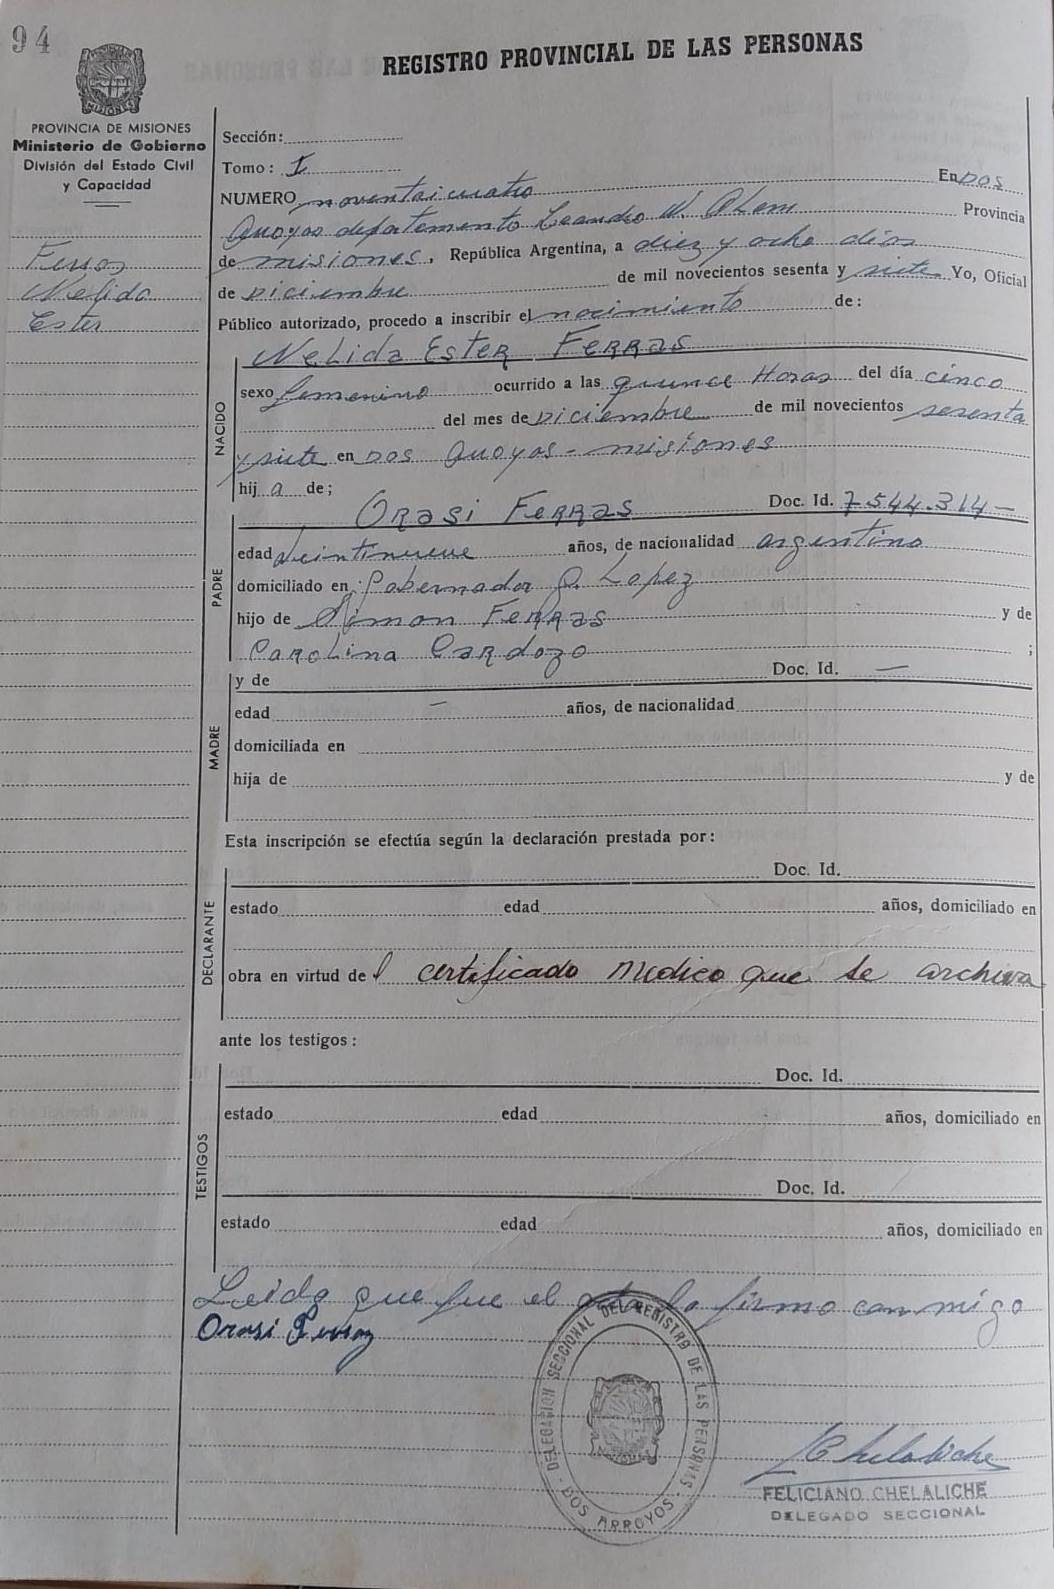 94
REGISTRO PROVINCIAL DE LAS PERSONAS
MISIONES
PROVINCIA DE MISIONES
Ministerio de Gobierno
División del Estado Civil
y Capacidad
Ferras
Nelida
Ester
Sección:
Tomo: I
NUMERO noventaicuatro En Dos
Arroyos departamento Leandro N. Alem Provincia
de misiones, República Argentina, a diez y ocho dias
de Diciembre de mil novecientos sesenta y siete Yo, Oficial
Público autorizado, procedo a inscribir el nacimiento de:
NACIDO
Nelida Ester Ferras
sexo femenino ocurrido a las quince Horas del día cinco
del mes de Diciembre de mil novecientos sesenta
y siete en Dos Arroyos - misiones
hij a de;
PADRE
Orasi Ferras Doc. Id. 7.544.314 —
edad veintinueve años, de nacionalidad argentino
domiciliado en Gobernador Lopez
hijo de Simon Ferras y de
Carolina Cardozo ;
MADRE
y de Doc. Id. —
edad — años, de nacionalidad
domiciliada en
hija de y de
Esta inscripción se efectúa según la declaración prestada por:
DECLARANTE
Doc. Id.
estado edad años, domiciliado en
obra en virtud de l certificado medico que se archiva
ante los testigos:
TESTIGOS
Doc. Id.
estado edad años, domiciliado en
Doc. Id.
estado edad años, domiciliado en
Leida que fue el acta la firmo conmigo
Orasi Ferraz
DELEGACION SECCIONAL DEL REGISTRO DE LAS PERSONAS
- DOS ARROYOS -
MISIONES
Chelaliche
FELICIANO CHELALICHE
DELEGADO SECCIONAL